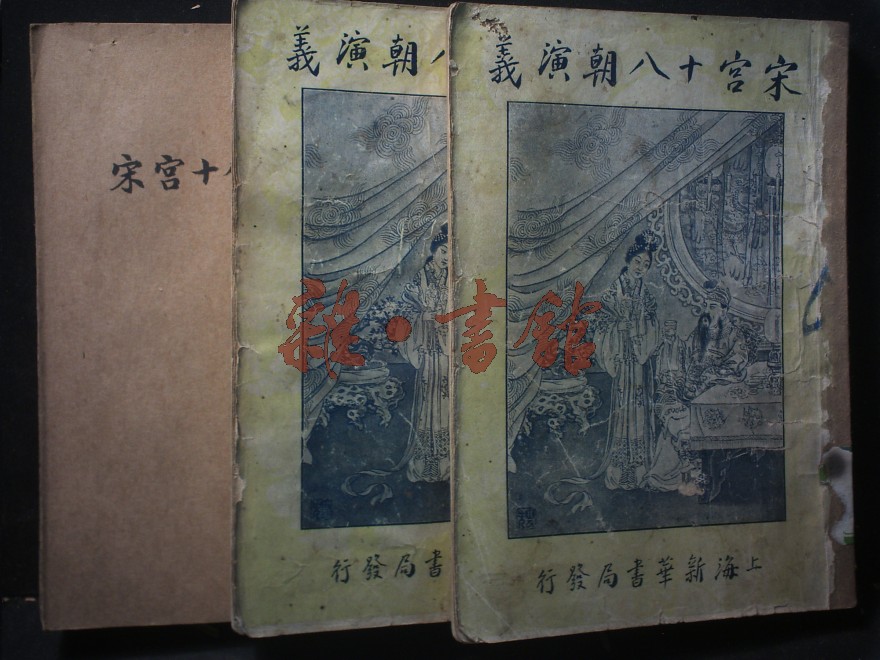 宋宫十
朝演義
書局發行
宋宮十八朝演義
上海新華書局發行
雜·書館